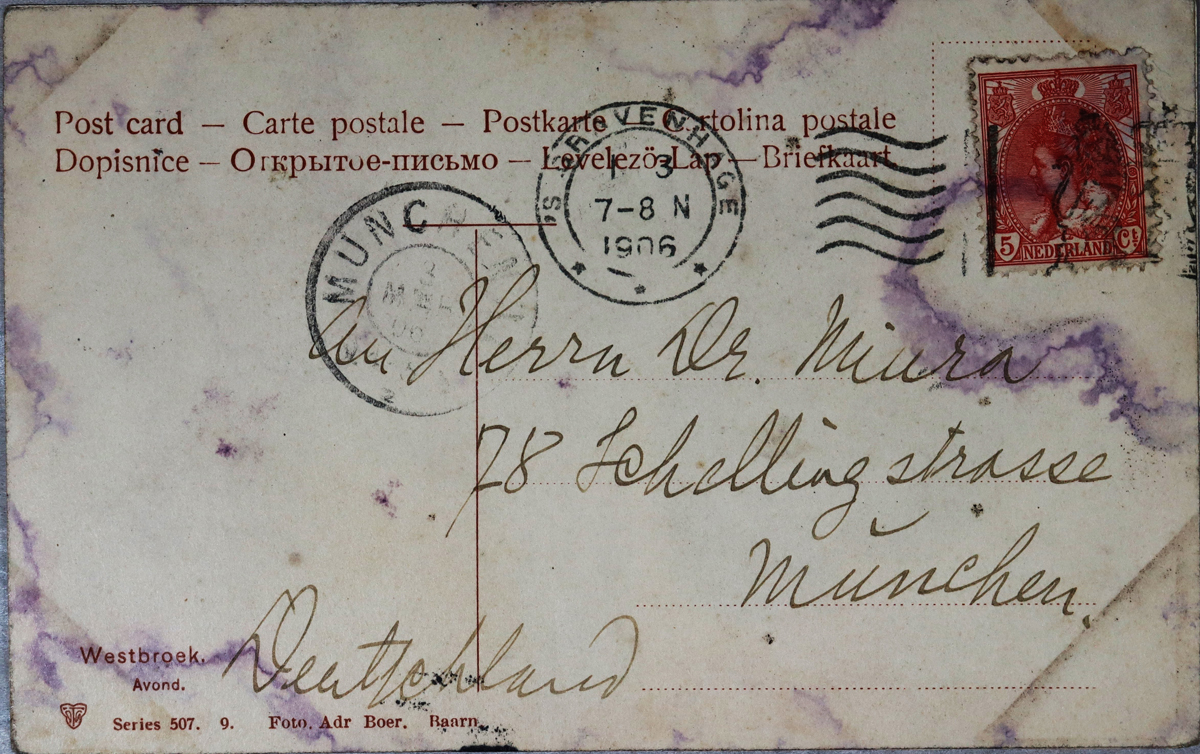 Post card — Carte postale — Postkarte — Cartolina postale
Dopisnice — Открытое-письмо — Levelezö-Lap — Briefkaart
'S GRAVENHAGE
1 3
7-8 N
1906
MUNCHEN
2
5 NEDERLAND Ct
An Herrn Dr. Miura
78 Schellingstrasse
München.
Deutschland
Westbroek.
Avond.
Series 507. 9. Foto. Adr Boer. Baarn